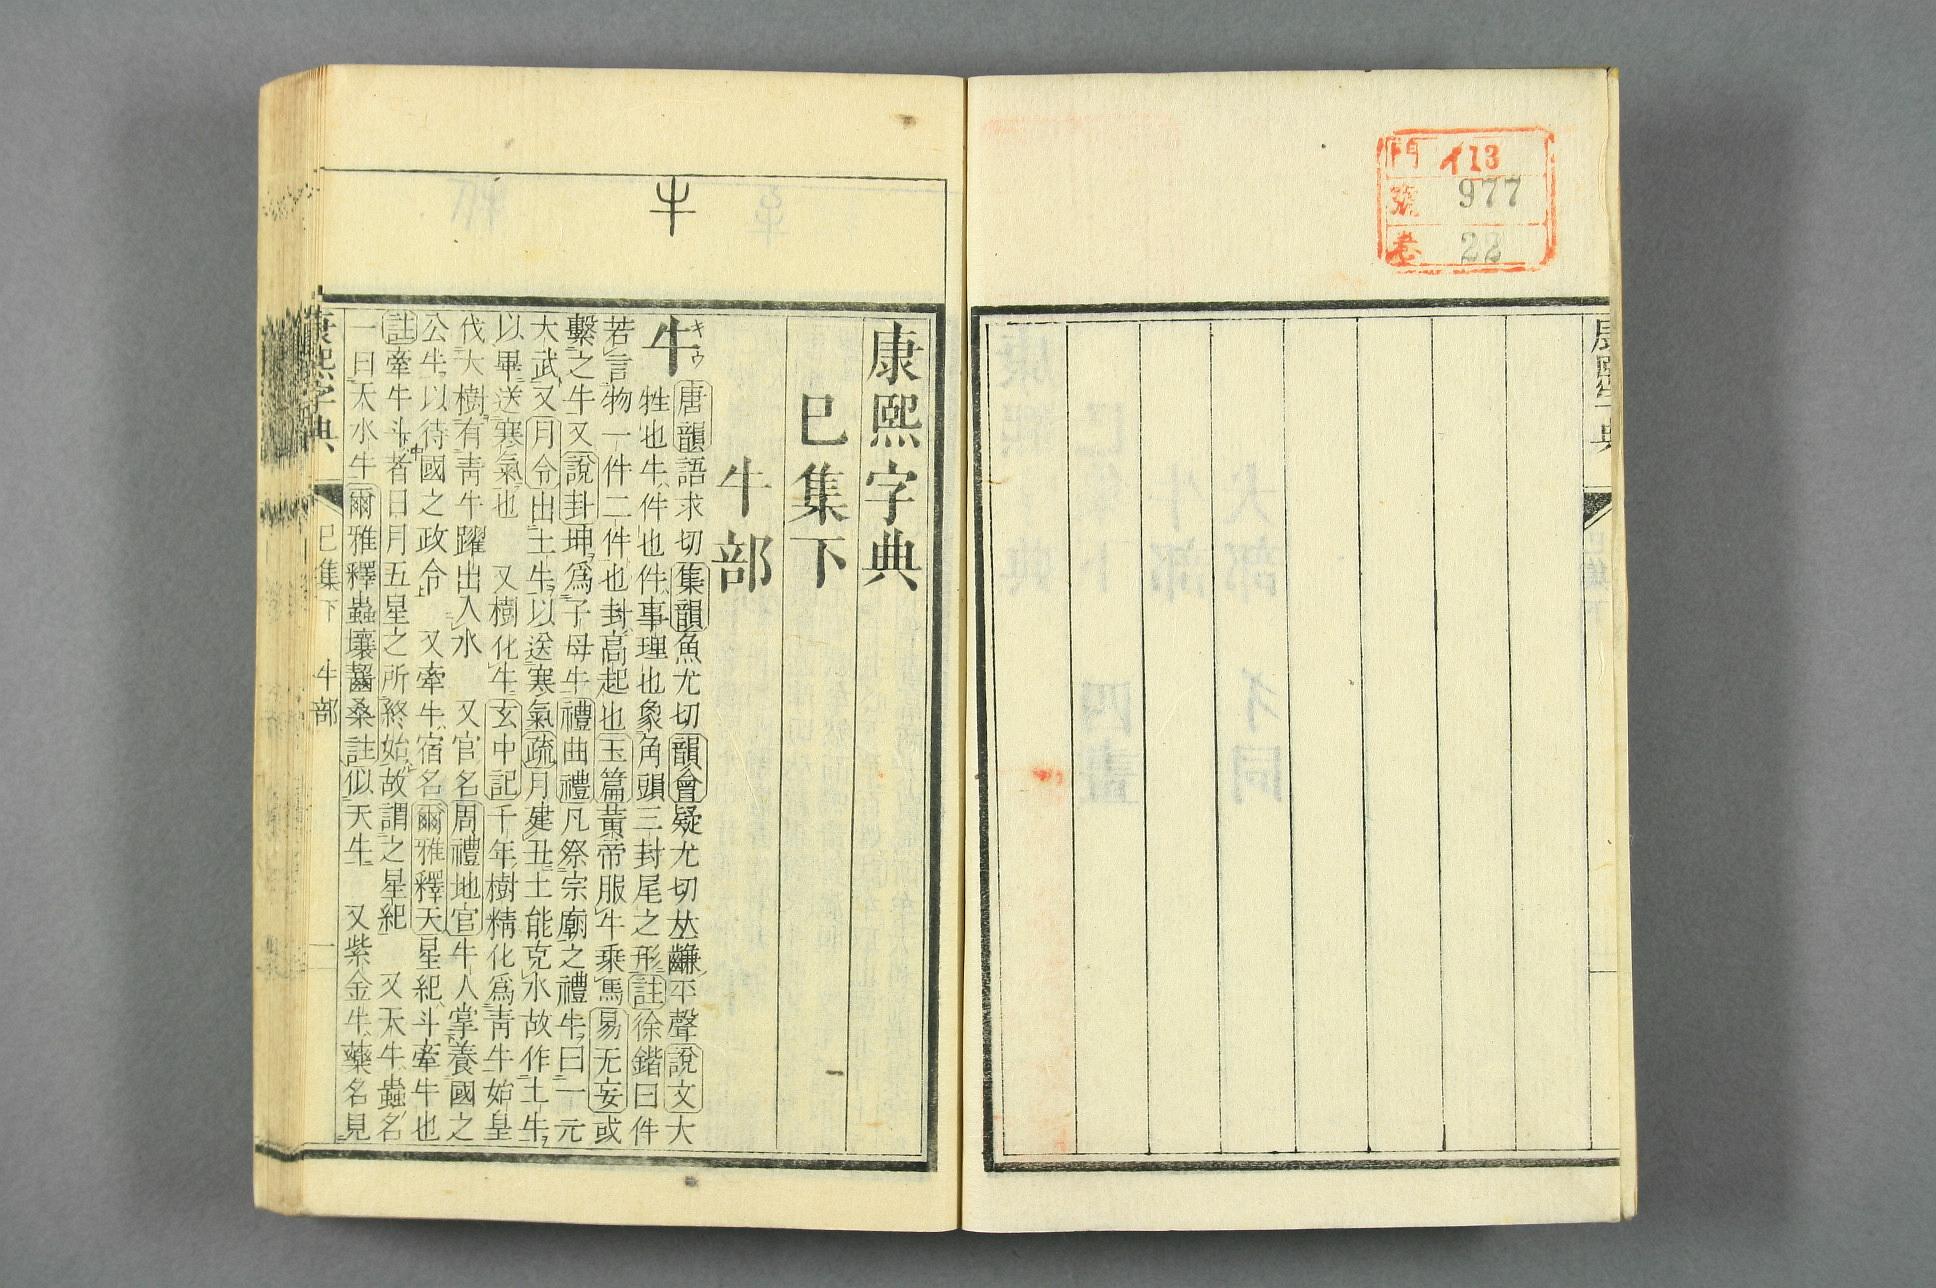 門 イ13
號 977
卷 22
康熙字典
康熙字典
巳集下
牛部
牛
牛
キウ
唐韻語求切集韻魚尤切韻會疑尤切𠀤齴平聲說文大
牲也牛件也件事理也象角頭三封尾之形註徐鍇曰件
若言物一件二件也封高起也玉篇黃帝服牛乘馬易无妄或
繫之牛又說卦坤爲子母牛禮曲禮凡祭宗廟之禮牛曰一元
大武又月令出土牛以送寒氣疏月建丑土能克水故作土牛
以畢送寒氣也 又樹化牛玄中記千年樹精化爲靑牛始皇
伐大樹有靑牛躍出入水 又官名周禮地官牛人掌養國之
公牛以待國之政令 又牽牛宿名爾雅釋天星紀斗牽牛也
註牽牛斗者日月五星之所終始故謂之星紀 又天牛蟲名
一曰天水牛爾雅釋蟲蠰齧桑註似天牛 又紫金牛藥名見
康熙字典 巳集下 牛部 一